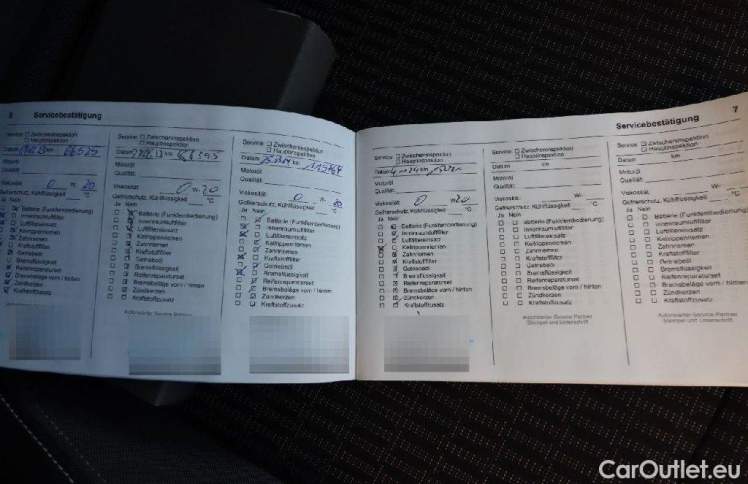 Servicebestätigung
Service: Zwischeninspektion
Hauptinspektion
Datum 66525
Motoröl
Qualität:
Viskosität: 0 20
Gefrierschutz, Kühlflüssigkeit °C
Ja Nein
Batterie (Funkfernbedienung)
Innenraumluftfilter
Luftfiltereinsatz
Keilrippenriemen
Zahnriemen
Kraftstofffilter
Getriebeöl
Bremsflüssigkeit
Reifenreparaturset
Bremsbeläge vorn / hinten
Zündkerzen
Kraftstoffzusatz
Service: Zwischeninspektion
Hauptinspektion
Datum
Motoröl
Qualität:
Viskosität: 0 W- 20
Gefrierschutz, Kühlflüssigkeit °C
Ja Nein
Batterie (Funkfernbedienung)
Innenraumluftfilter
Luftfiltereinsatz
Keilrippenriemen
Zahnriemen
Kraftstofffilter
Getriebeöl
Bremsflüssigkeit
Reifenreparaturset
Bremsbeläge vorn / hinten
Zündkerzen
Kraftstoffzusatz
Autorisierter Service-Partner
Service: Zwischeninspektion
Hauptinspektion
Datum km
Motoröl
Qualität:
Viskosität: 0
Gefrierschutz, Kühlflüssigkeit °C
Ja Nein
Batterie (Funkfernbedienung)
Innenraumluftfilter
Luftfiltereinsatz
Keilrippenriemen
Zahnriemen
Kraftstofffilter
Getriebeöl
Bremsflüssigkeit
Reifenreparaturset
Bremsbeläge vorn / hinten
Zündkerzen
Kraftstoffzusatz
Servicebestätigung 7
Service: Zwischeninspektion
Hauptinspektion
Datum
Motoröl
Qualität:
Viskosität: 0 20
Gefrierschutz, Kühlflüssigkeit °C
Ja Nein
Batterie (Funkfernbedienung)
Innenraumluftfilter
Luftfiltereinsatz
Keilrippenriemen
Zahnriemen
Kraftstofffilter
Getriebeöl
Bremsflüssigkeit
Reifenreparaturset
Bremsbeläge vorn / hinten
Zündkerzen
Kraftstoffzusatz
Service: Zwischeninspektion
Hauptinspektion
Datum km
Motoröl
Qualität:
Viskosität: W-
Gefrierschutz, Kühlflüssigkeit °C
Ja Nein
Batterie (Funkfernbedienung)
Innenraumluftfilter
Luftfiltereinsatz
Keilrippenriemen
Zahnriemen
Kraftstofffilter
Getriebeöl
Bremsflüssigkeit
Reifenreparaturset
Bremsbeläge vorn / hinten
Zündkerzen
Kraftstoffzusatz
Autorisierter Service-Partner
Stempel und Unterschrift
Service: Zwischeninspektion
Hauptinspektion
Datum km
Motoröl
Qualität:
Viskosität: W-
Gefrierschutz, Kühlflüssigkeit °C
Ja Nein
Batterie (Funkfernbedienung)
Innenraumluftfilter
Luftfiltereinsatz
Keilrippenriemen
Zahnriemen
Kraftstofffilter
Getriebeöl
Bremsflüssigkeit
Reifenreparaturset
Bremsbeläge vorn / hinten
Zündkerzen
Kraftstoffzusatz
Autorisierter Service-Partner
Stempel und Unterschrift
CarOutlet.eu